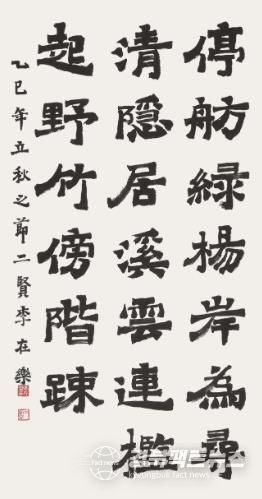 停舫綠楊岸為尋
清隱居溪雲連檻
起野竹傍階踈
乙巳年立秋之節二賢李在樂
Fact news
경북팩트뉴스
kyoungbuk fact news